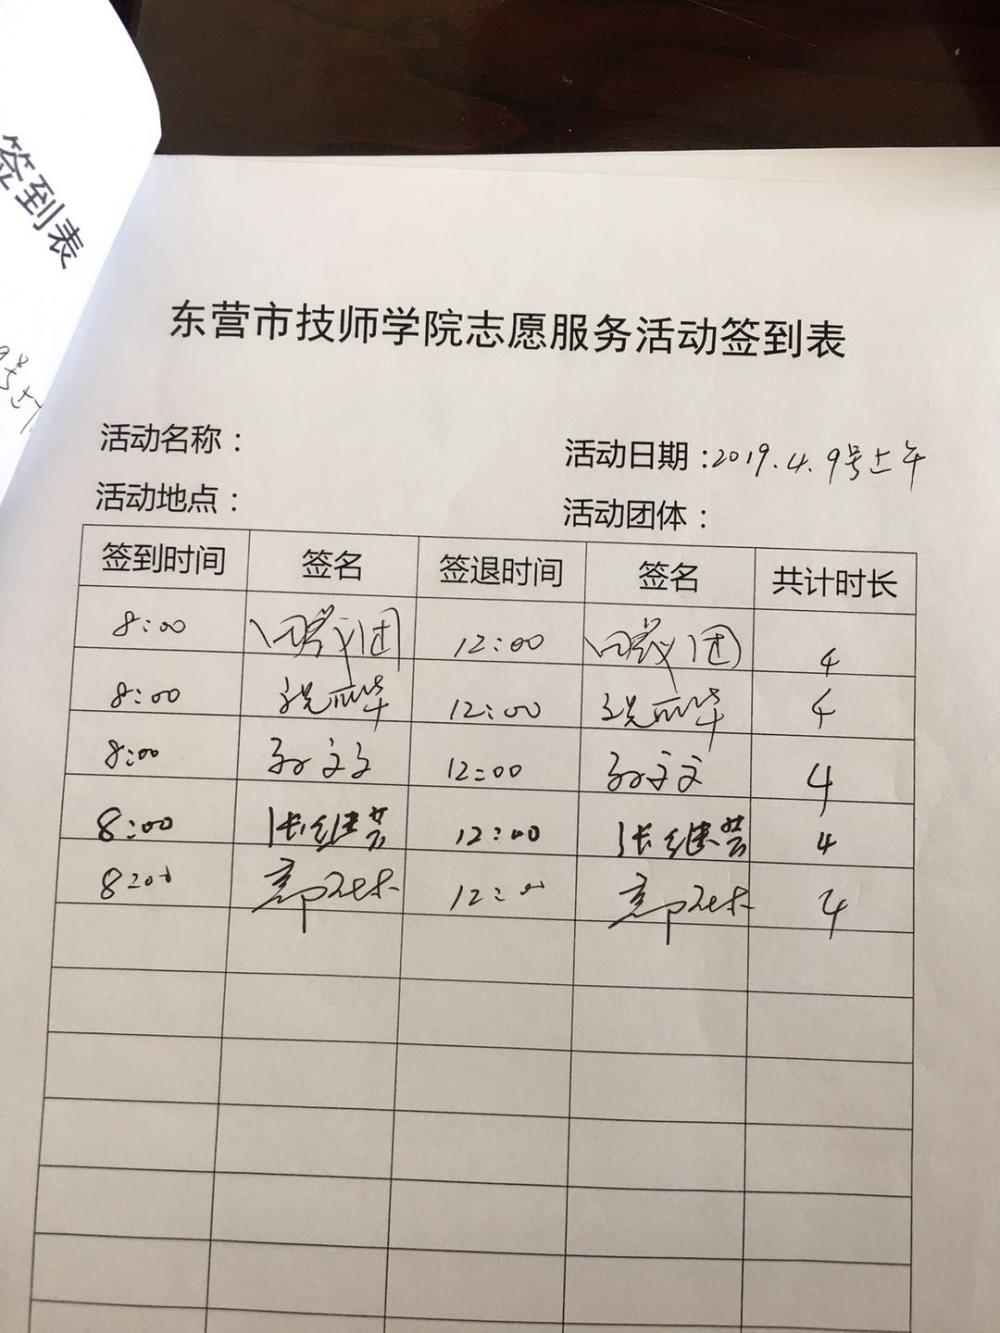 签到表
9号上
东营市技师学院志愿服务活动签到表
活动名称：
活动日期：2019.4.9号上午
活动地点：
活动团体：
签到时间 签名 签退时间 签名 共计时长
8:00 12:00 4
8:00 12:00 4
8:00 孙文文 12:00 孙文文 4
8:00 张继芸 12:00 张继芸 4
8:00 12:00 4